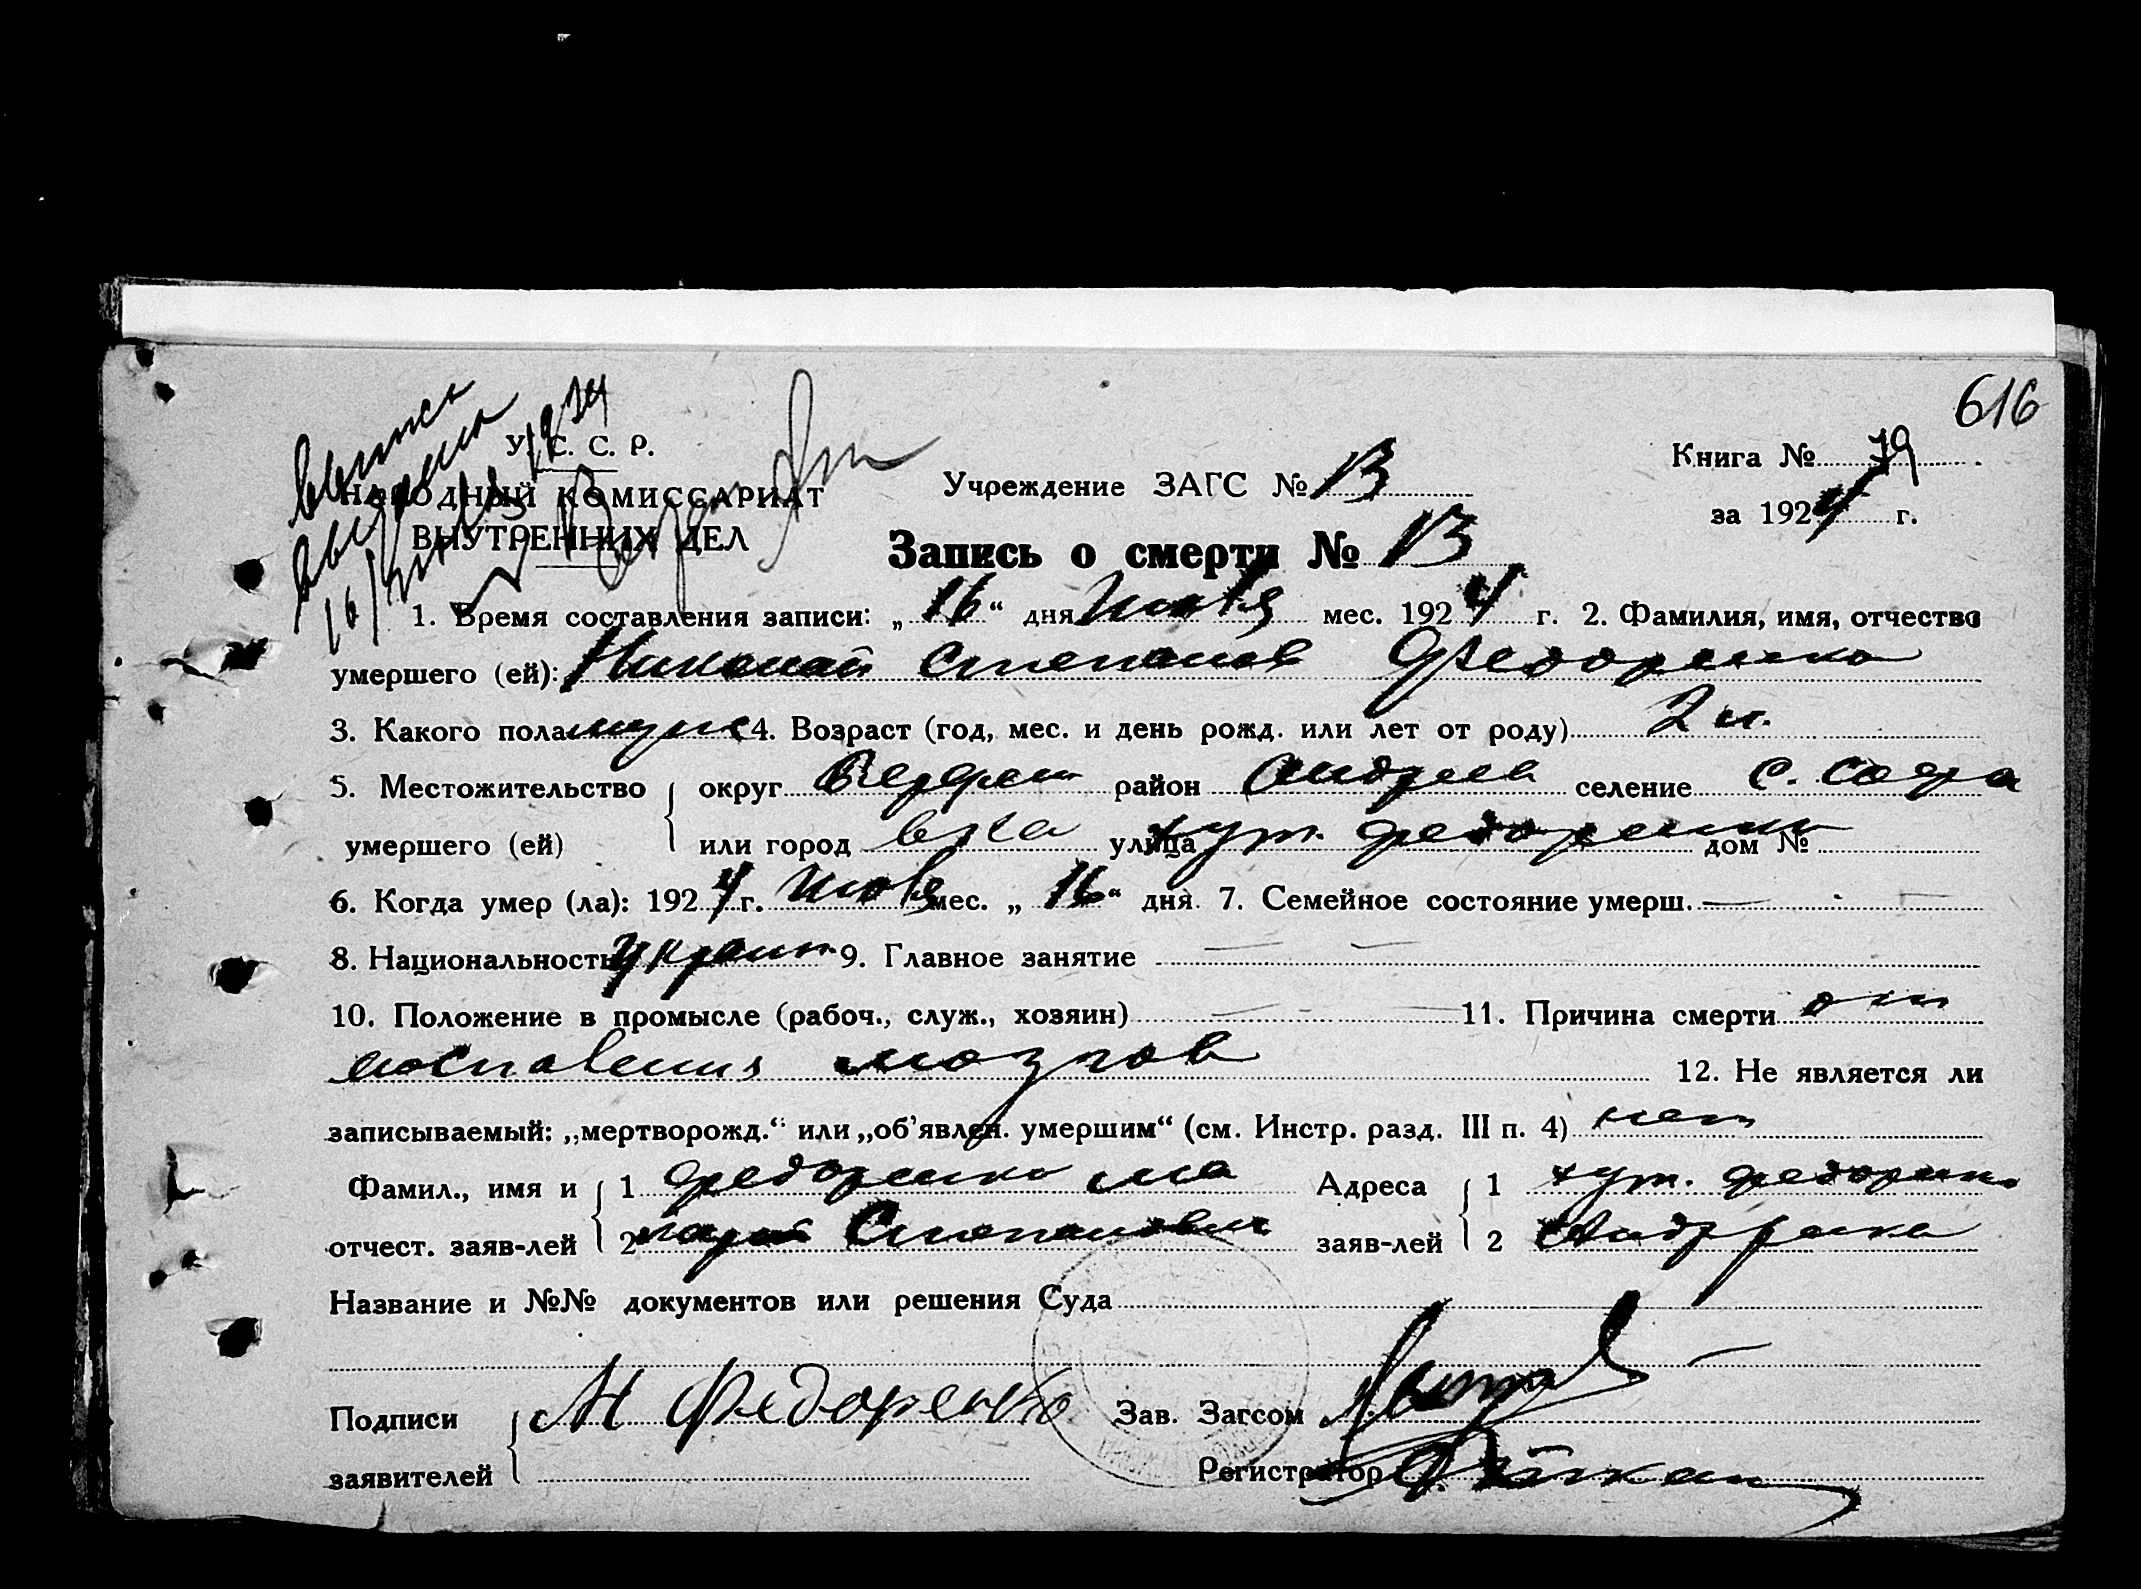 616
выпись
выдана
У. С. С. Р.
НАРОДНЫЙ КОМИССАРИАТ
ВНУТРЕННИХ ДЕЛ
Учреждение ЗАГС № 13
Книга № 79
за 1924 г.
Запись о смерти № 13
1. Время составления записи: „16“ дня июля мес. 1924 г. 2. Фамилия, имя, отчество
умершего (ей): Николай Степанов Федоренко
3. Какого пола муж 4. Возраст (год, мес. и день рожд. или лет от роду) 2 м.
5. Местожительство округ район Андреев селение с. Софи
умершего (ей) или город евка улица хут. Федоренко дом №
6. Когда умер (ла): 1924 г. июля мес. „16“ дня 7. Семейное состояние умерш. —
8. Национальность украин 9. Главное занятие — —
10. Положение в промысле (рабоч., служ., хозяин) — - — 11. Причина смерти от
воспаления мозгов 12. Не является ли
записываемый: „мертворожд.“ или „об’явлен. умершим“ (см. Инстр. разд. III п. 4) нет
Фамил., имя и 1 Федоренко Адреса 1 хут. Федоренко
отчест. заяв-лей 2 Степанович заяв-лей 2
Название и №№ документов или решения Суда
Подписи М Федоренко Зав. Загсом
заявителей Регистратор